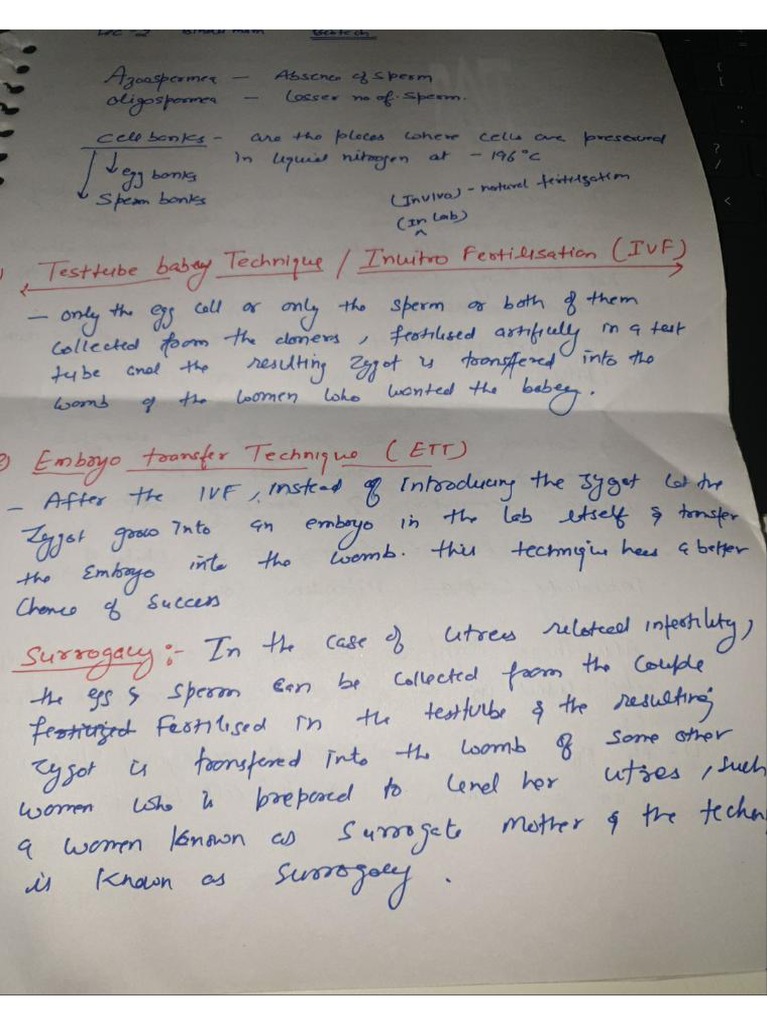 Azoospermea - Absence of sperm
oligospermea - Losser no of. sperm.
Cell banks - are the places where cells are preserved
in liquid nitrogen at - 196°C
egg banks
Sperm banks
(Inviva) - natural fertilization
(In Lab)
Testtube babey Technique / Invitro Fertilisation (IVF)
- only the egg cell or only the sperm or both of them
collected from the doners, fertilised artificially in a test
tube and the resulting Zygot is transfered into the
womb of the women who wanted the babey.
Embryo transfer Technique (ETT)
- After the IVF, instead of introducing the zygot let the
Zygot grow into an embryo in the lab itself & transfer
the Embryo into the womb. this technique has a better
Chance of Success
Surrogacy :- In the case of utress related infertility,
the egg & sperm can be collected from the couple
Fertilised in the testturbe & the resulting
Zygot is transfered into the womb of some other
women who is prepared to lend her utres, such
a women known as Surrogate mother & the
is known as Surrogacy.